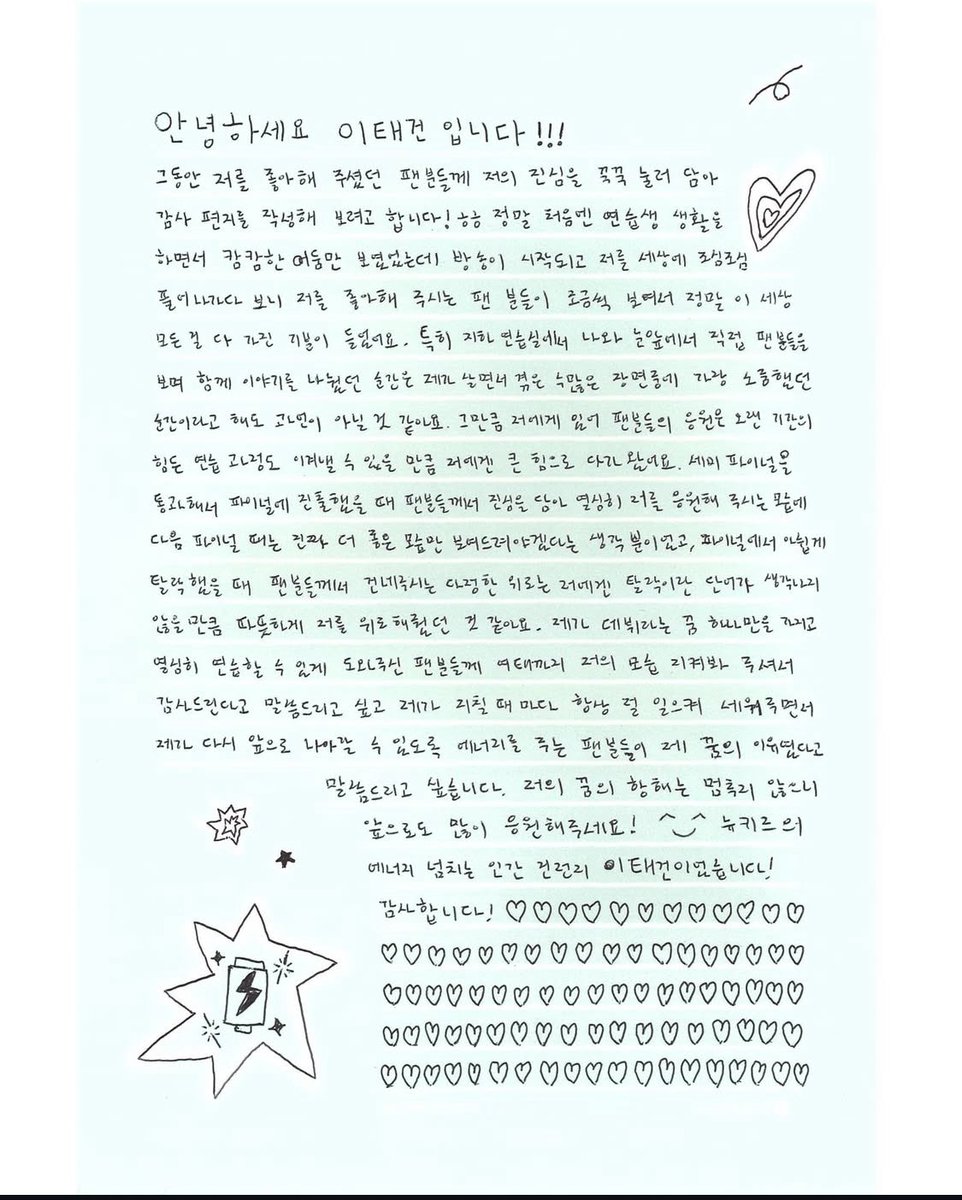 안녕하세요 이태건 입니다!!!
그동안 저를 좋아해 주셨던 팬분들께 저의 진심을 꾹꾹 눌러 담아
감사 편지를 작성해 보려고 합니다! ㅎㅎ 정말 처음엔 연습생 생활을
하면서 캄캄한 어둠만 보였었는데 방송이 시작되고 저를 세상에 조심조심
풀어나가다 보니 저를 좋아해 주시는 팬 분들이 조금씩 보여서 정말 이 세상
모든걸 다 가진 기분이 들었어요. 특히 지하 연습실에서 나와 눈앞에서 직접 팬분들을
보며 함께 이야기를 나눴던 순간은 제가 살면서 겪은 수많은 장면중에 가장 소중했던
순간이라고 해도 과언이 아닐 것 같아요. 그만큼 저에게 있어 팬분들의 응원은 오랜 기간의
힘든 연습 과정도 이겨낼 수 있을 만큼 저에겐 큰 힘으로 다가 왔어요. 세미 파이널을
통과해서 파이널에 진출했을 때 팬분들께서 진심을 담아 열심히 저를 응원해 주시는 모습에
다음 파이널 때는 진짜 더 좋은 모습만 보여드려야겠다는 생각 뿐이었고, 파이널에서 아쉽게
탈락했을 때 팬분들께서 건네주시는 다정한 위로는 저에겐 탈락이란 단어가 생각나지
않을만큼 따뜻하게 저를 위로해줬던 것 같아요. 제가 데뷔라는 꿈 하나만을 가지고
열심히 연습할 수 있게 도와주신 팬분들께 여태까지 저의 모습 지켜봐 주셔서
감사드린다고 말씀드리고 싶고 제가 지칠 때 마다 항상 절 일으켜 세워주면서
제가 다시 앞으로 나아갈 수 있도록 에너지를 주는 팬분들이 제 꿈의 이유였다고
말씀드리고 싶습니다. 저의 꿈의 항해는 멈추지 않으니
앞으로도 많이 응원해주세요! ^‿^ 뉴키즈의
에너지 넘치는 인간 건전지 이태건이었습니다!
감사합니다! ♡♡♡♡♡♡♡♡♡♡♡♡♡
♡♡♡♡♡♡♡♡♡♡♡♡♡♡♡♡♡♡
♡♡♡♡♡♡♡♡♡♡♡♡♡♡♡♡♡♡♡
♡♡♡♡♡♡♡♡♡♡♡♡♡♡♡♡♡♡
♡♡♡♡♡♡♡♡♡♡♡♡♡♡♡♡♡♡♡